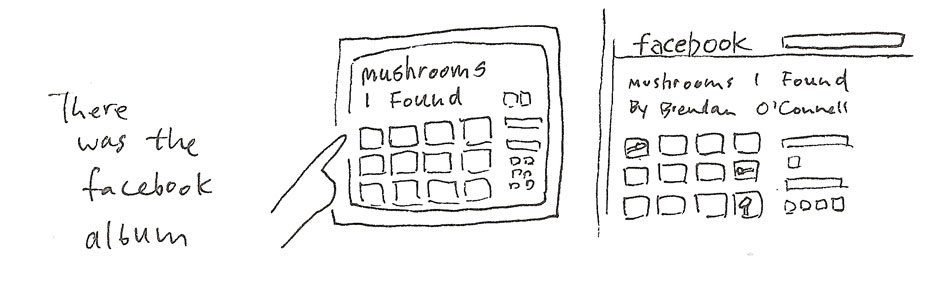 There
was the
facebook
album
mushrooms
I Found
facebook
Mushrooms I Found
By Brendan O'Connell